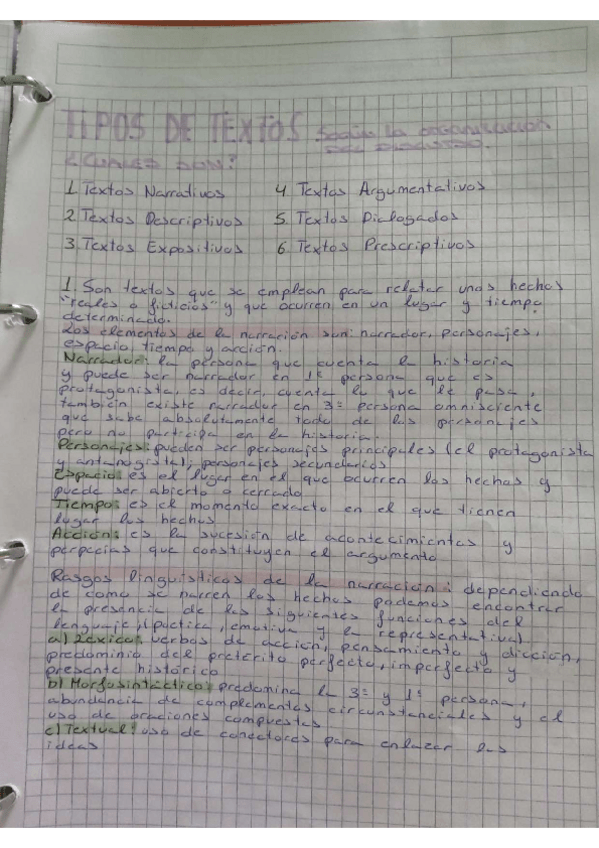 TIPOS DE TEXTOS según la organización
del discurso.
¿CUALES SON?
1. Textos Narrativos 4 Textos Argumentativos
2. Textos Descriptivos 5. Textos Dialogados
3. Textos Expositivos 6. Textos Prescriptivos
1. Son textos que se emplean para relatar unos hechos
"reales o ficticios" y que ocurren en un lugar y tiempo
determinado.
Los elementos de la narración son: narrador, personajes,
espacio, tiempo y acción.
Narrador: la persona que cuenta la historia
y puede ser narrador en 1º persona que es
protagonista, es decir, cuenta lo que le pasa,
también existe narrador en 3º persona omnisciente
que sabe absolutamente todo de los personajes
pero no participa en la historia.
Personajes: pueden ser personajes principales (el protagonista
y antagonista), personajes secundarios
Espacio: es el lugar en el que ocurren los hechos y
puede ser abierto o cerrado
Tiempo: es el momento exacto en el que tienen
lugar los hechos
Acción: es la sucesión de acontecimientos y
peripecias que constituyen el argumento
Rasgos linguísticos de la narración: dependiendo
de como se narren los hechos podemos encontrar
la presencia de las siguientes funciones del
lenguaje, (poética, emotiva y la representativa)
a) Léxico: verbos de acción, pensamiento y dicción,
predominio del pretérito perfecto, imperfecto y
presente histórico
b) Morfosintáctico: predomina la 3º y 1º persona,
abundancia de complementos circunstanciales y el
uso de oraciones compuestas
c) Textual: uso de conectores para enlazar las
ideas